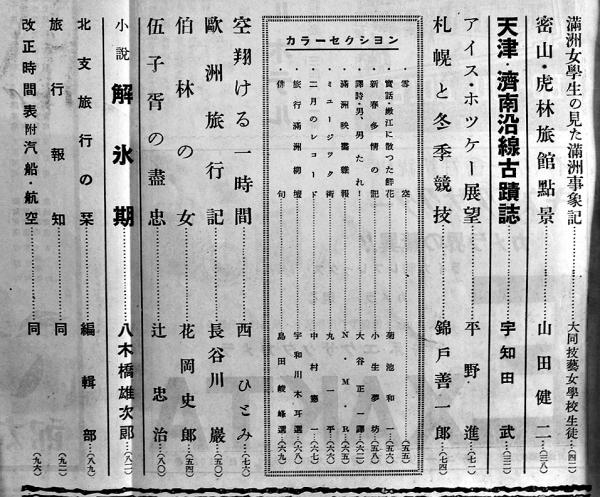 滿洲女學生の見た滿洲事象記……大同技藝女學校生徒…(四二)
密山・虎林旅館點景……山田健二…(三八)
天津・濟南沿線古蹟誌……宇知田武…(三二)
アイス・ホツケー展望……平野進…(七二)
札幌と冬季競技……錦戸善一郎…(七四)
カラーセクション
・零……空……(五五)
・實話・嫩江に散つた鮮花……菊池和一…(五六)
・新春多情の記……小生夢坊…(五八)
・譯詩・男、男たれ!……大谷正一譯…(六二)
・滿洲映畫雜報……N・M・R…(六五)
・ミユージツク術……丸一平…(六六)
・二月のレコード……中村憲一…(六七)
・旅行滿洲柳壇……宇和川木耳選…(六八)
・俳句……島田峻峰選…(六九)
空翔ける一時間……西ひとみ…(七六)
歐洲旅行記……長谷川巖…(五〇)
伯林の女……花岡史郎…(五四)
伍子胥の盡忠……辻忠治…(八〇)
小說 解氷期……八木橋雄次郞…(八一)
北支旅行の栞……編輯部…(八九)
旅行報知……同…(九二)
改正時間表附汽船・航空……同…(九六)